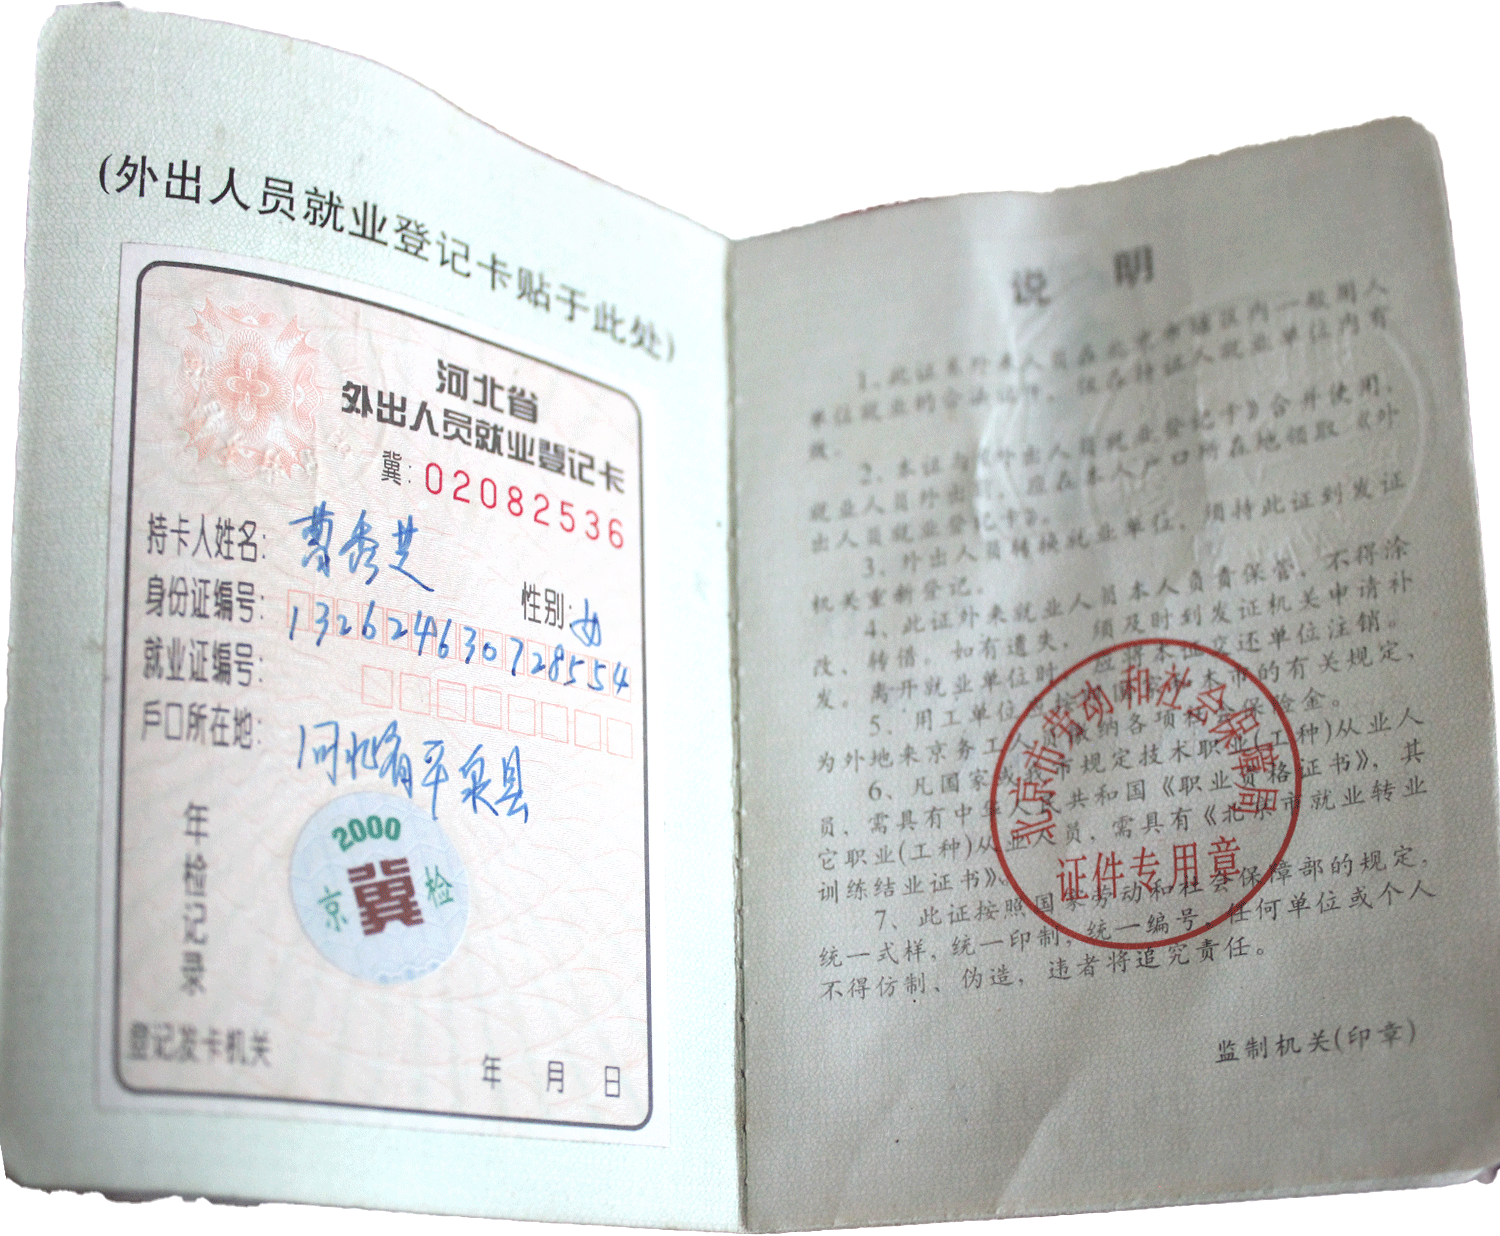 (外出人员就业登记卡贴于此处)
河北省
外出人员就业登记卡
冀: 02082536
持卡人姓名: 曹秀芝
性别: 女
身份证编号: 132624630728554
就业证编号:
户口所在地: 河北省平泉县
2000
京 冀 检
年检记录
登记发卡机关
年 月 日
说 明
1、此证系外来人员在北京市辖区内一般用人
单位就业的合法证件，仅在持证人就业单位内有
效。
2、本证与《外出人员就业登记卡》合并使用，
就业人员外出前，应在本人户口所在地领取《外
出人员就业登记卡》。
3、外出人员转换就业单位，须持此证到发证
机关重新登记。
4、此证外来就业人员本人负责保管，不得涂
改、转借。如有遗失，须及时到发证机关申请补
发。离开就业单位时，应将本证交还单位注销。
5、用工单位应按照国家和本市的有关规定，
为外地来京务工人员缴纳各项社会保险金。
6、凡国家或我市规定技术职业(工种)从业人
员，需具有中华人民共和国《职业资格证书》，其
它职业(工种)从业人员，需具有《北京市就业转业
训练结业证书》。
7、此证按照国家劳动和社会保障部的规定，
统一式样，统一印制，统一编号，任何单位或个人
不得仿制、伪造，违者将追究责任。
北京市劳动和社会保障局
证件专用章
监制机关(印章)